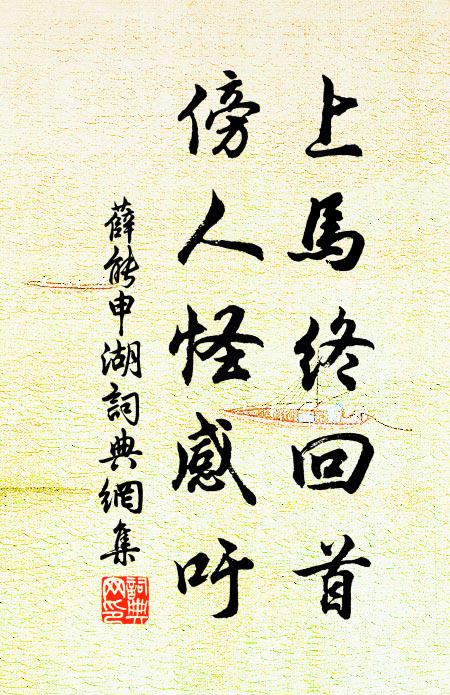 上馬終回首
傍人怪感吁
薛能申湖詞典網集
詞典
网印